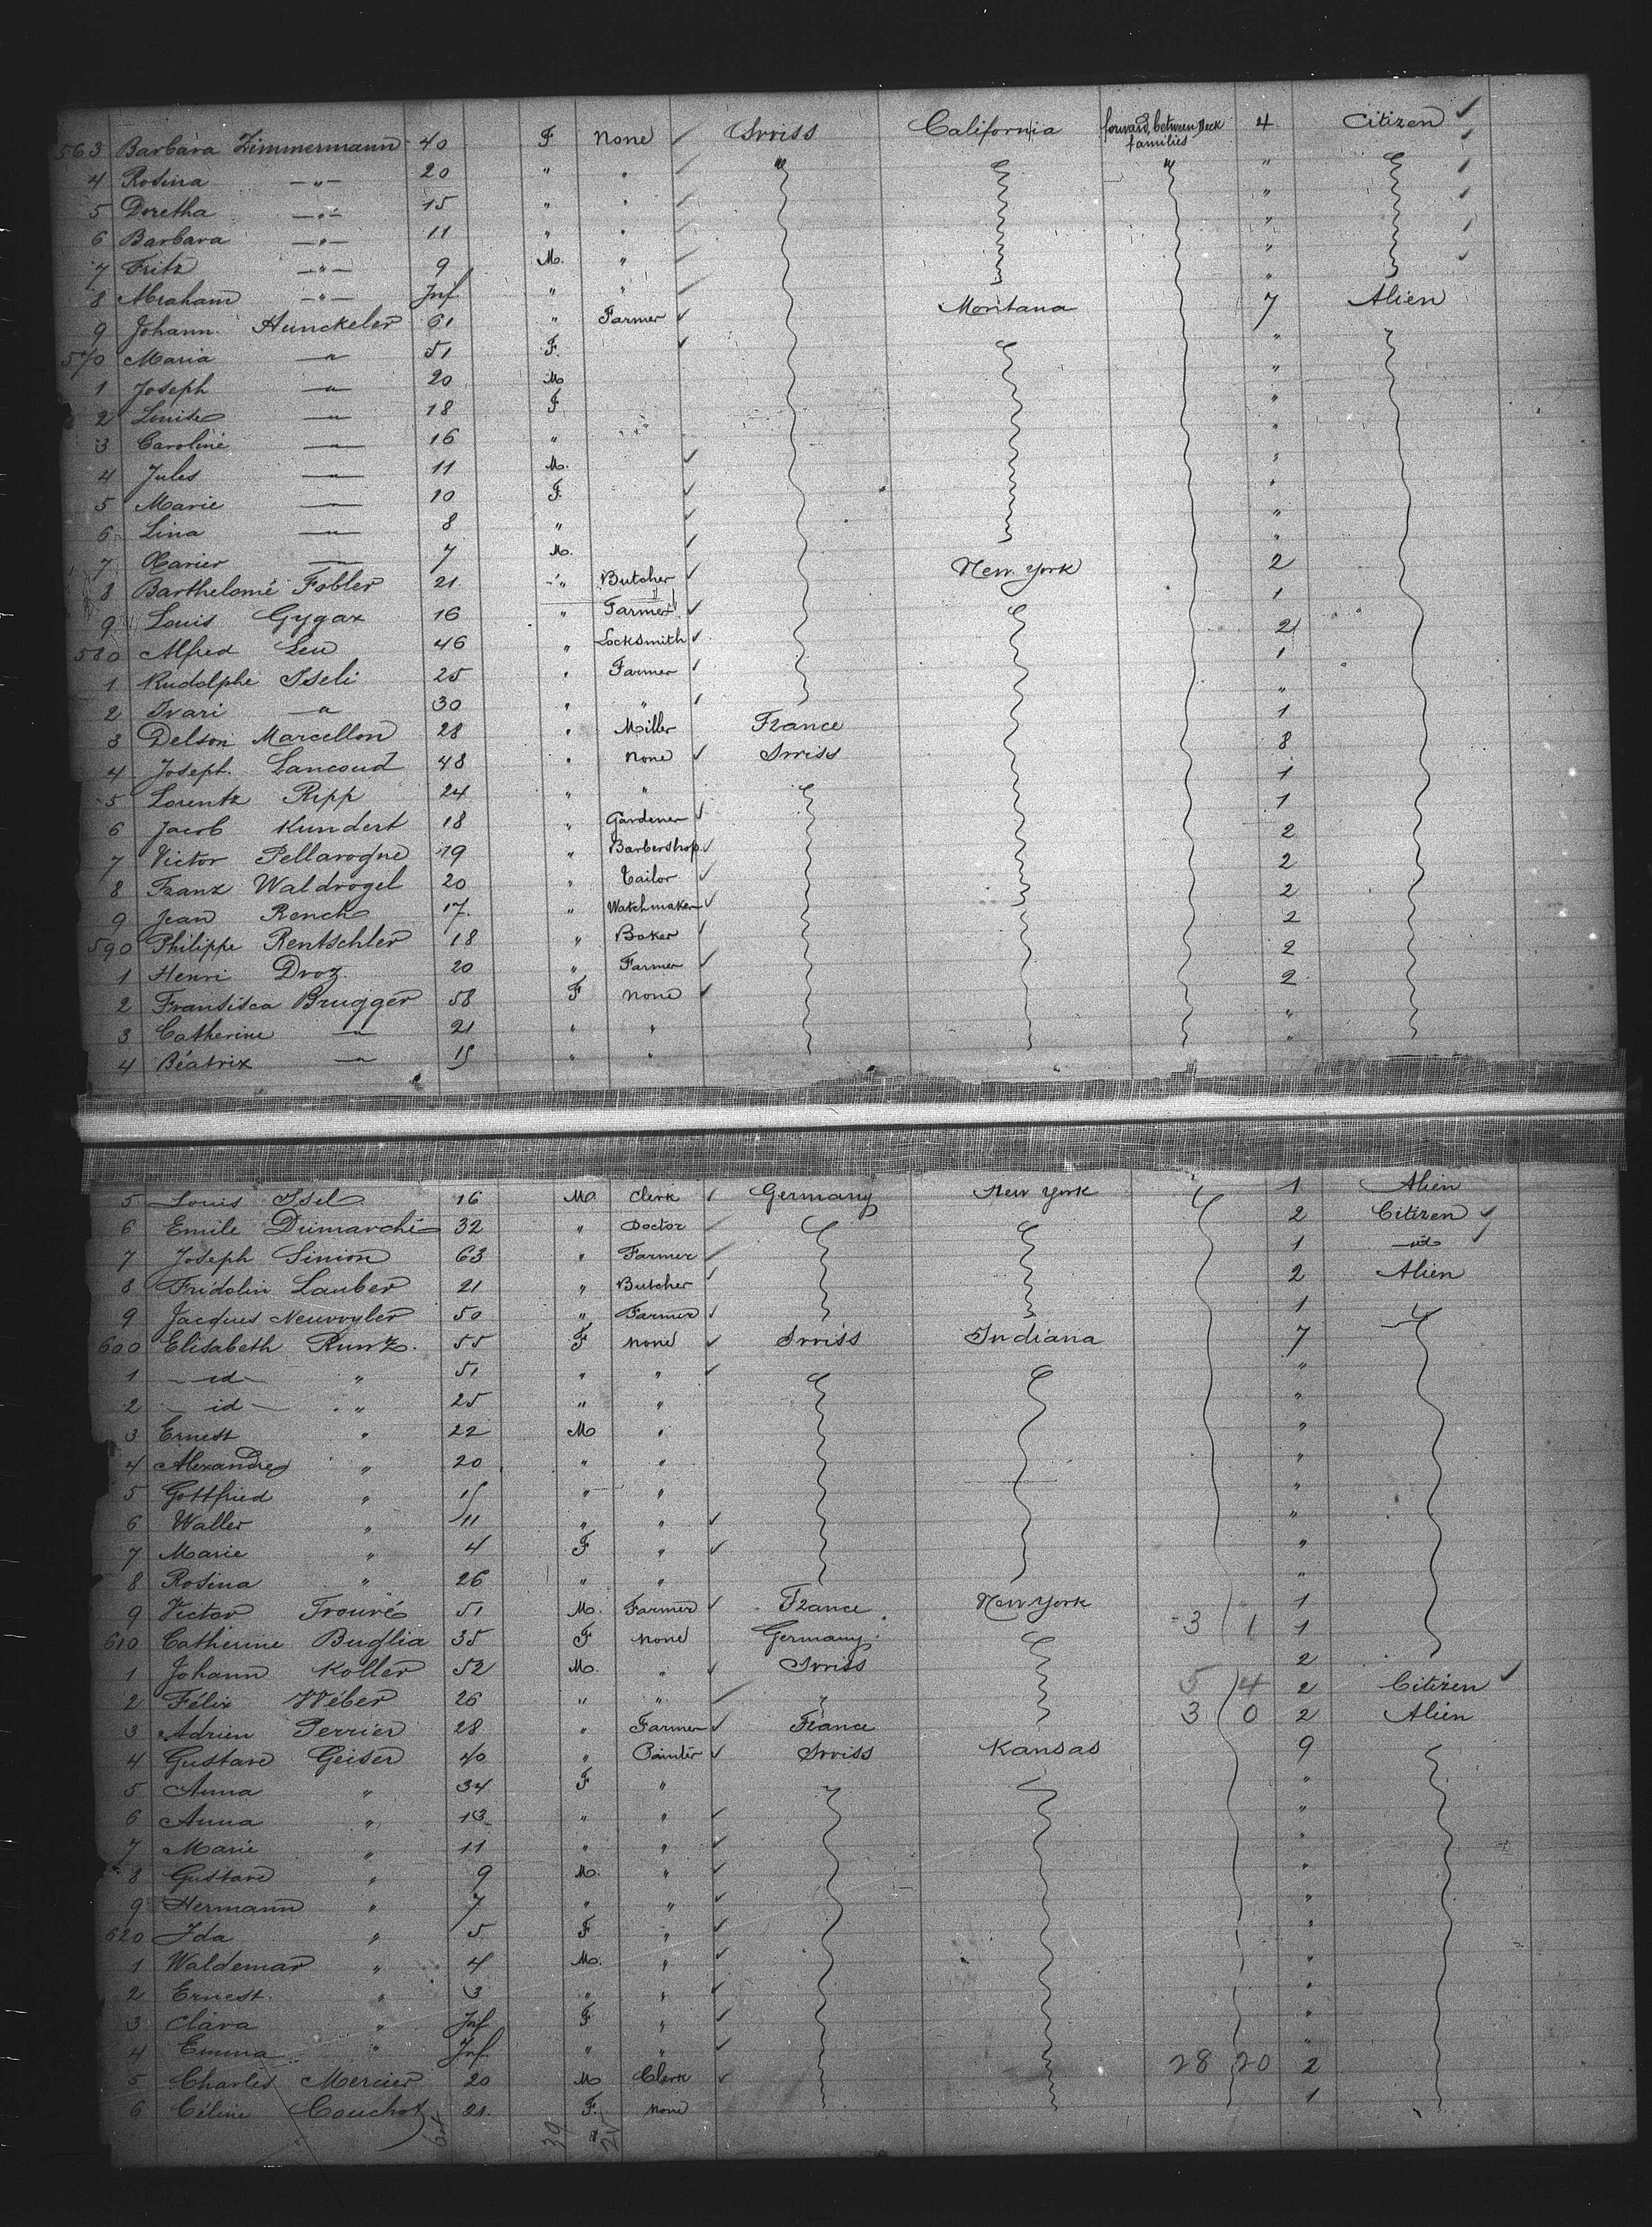 563 Barbara Zimmermann 40 F None ✓ Swiss California forward, between deck families 4 Citizen ✓
4 Rosina —"— 20 " " ✓ " " " ✓
5 Doretha —"— 15 " " ✓ " ✓
6 Barbara —"— 11 " " ✓ " ✓
7 Fritz —"— 9 M. " ✓ " ✓
8 Abraham —"— Inf " " ✓ "
9 Johann Hunckeler 61 " Farmer ✓ Montana 7 Alien
570 Maria —"— 51 F. ✓ "
1 Joseph —"— 20 M "
2 Louise —"— 18 F "
3 Caroline —"— 16 " "
4 Jules —"— 11 M. ✓ "
5 Marie —"— 10 F. ✓ "
6 Lina —"— 8 " ✓ "
7 Xavier —"— 7 M. ✓ "
8 Barthelomé Fobler 21 " Butcher ✓ New York 2
9 Louis Gygax 16 " Farmer ✓ 1
580 Alfred Leu 46 " Locksmith ✓ 2
1 Rudolphe Iseli 25 " Farmer ✓ 1
2 Ivari —"— 30 " " ✓ "
3 Delson Marcellon 28 " Miller France 1
4 Joseph Lancoud 48 " None ✓ Swiss 8
5 Lorentz Ripp 24 " " 1
6 Jacob Kundert 18 " Gardener ✓ 1
7 Victor Pellarogne 19 " Barbershop ✓ 2
8 Franz Waldvogel 20 " Tailor ✓ 2
9 Jean Rench 17. " Watchmaker ✓ 2
590 Philippe Rentschler 18 " Baker ✓ 2
1 Henri Droz 20 " Farmer ✓ 2
2 Fransisca Brugger 58 F None ✓ 2
3 Catherine —"— 21 " " "
4 Béatrix —"— 15 " " "
5 Louis Isel 16 M. Clerk ✓ Germany New York 1 Alien
6 Emile Dumarché 32 " Doctor ✓ 2 Citizen ✓
7 Joseph Sinion 63 " Farmer ✓ 1 —id— ✓
8 Fridolin Lauber 21 " Butcher ✓ 2 Alien
9 Jacques Neuvvyler 50 " Farmer ✓ 1
600 Elisabeth Runz. 55 F None ✓ Swiss Indiana 7
1 —id— " 51 " " ✓ "
2 —id— " 25 " " "
3 Ernest " 22 M " "
4 Alexandre " 20 " " "
5 Gottfried " 15 " " "
6 Walter " 11 " " ✓ "
7 Marie " 4 F " ✓ "
8 Rosina " 26 " " "
9 Victor Trouvé 51 M. Farmer ✓ France New York 1
610 Catherine Buglia 35 F None Germany 3 1 1
1 Johann Koller 52 M. " ✓ Swiss 2
2 Félix Wéber 26 " " ✓ " 5 4 2 Citizen ✓
3 Adrien Perrier 28 " Farmer ✓ France 3 0 2 Alien
4 Gustave Geiser 40 " Painter ✓ Swiss Kansas 9
5 Anna " 34 F " "
6 Anna " 13 " " ✓ "
7 Marie " 11 " " ✓ "
8 Gustave " 9 M. " ✓ "
9 Hermann " 7 " " ✓ "
620 Ida " 5 F " ✓ "
1 Waldemar " 4 M. " ✓ "
2 Ernest. " 3 " " ✓ "
3 Clara " Inf F " ✓ "
4 Emma " Inf " " ✓ "
5 Charles Mercier 20 M Clerk ✓ 28 20 2
6 Céline Couchot 21. F. None 1